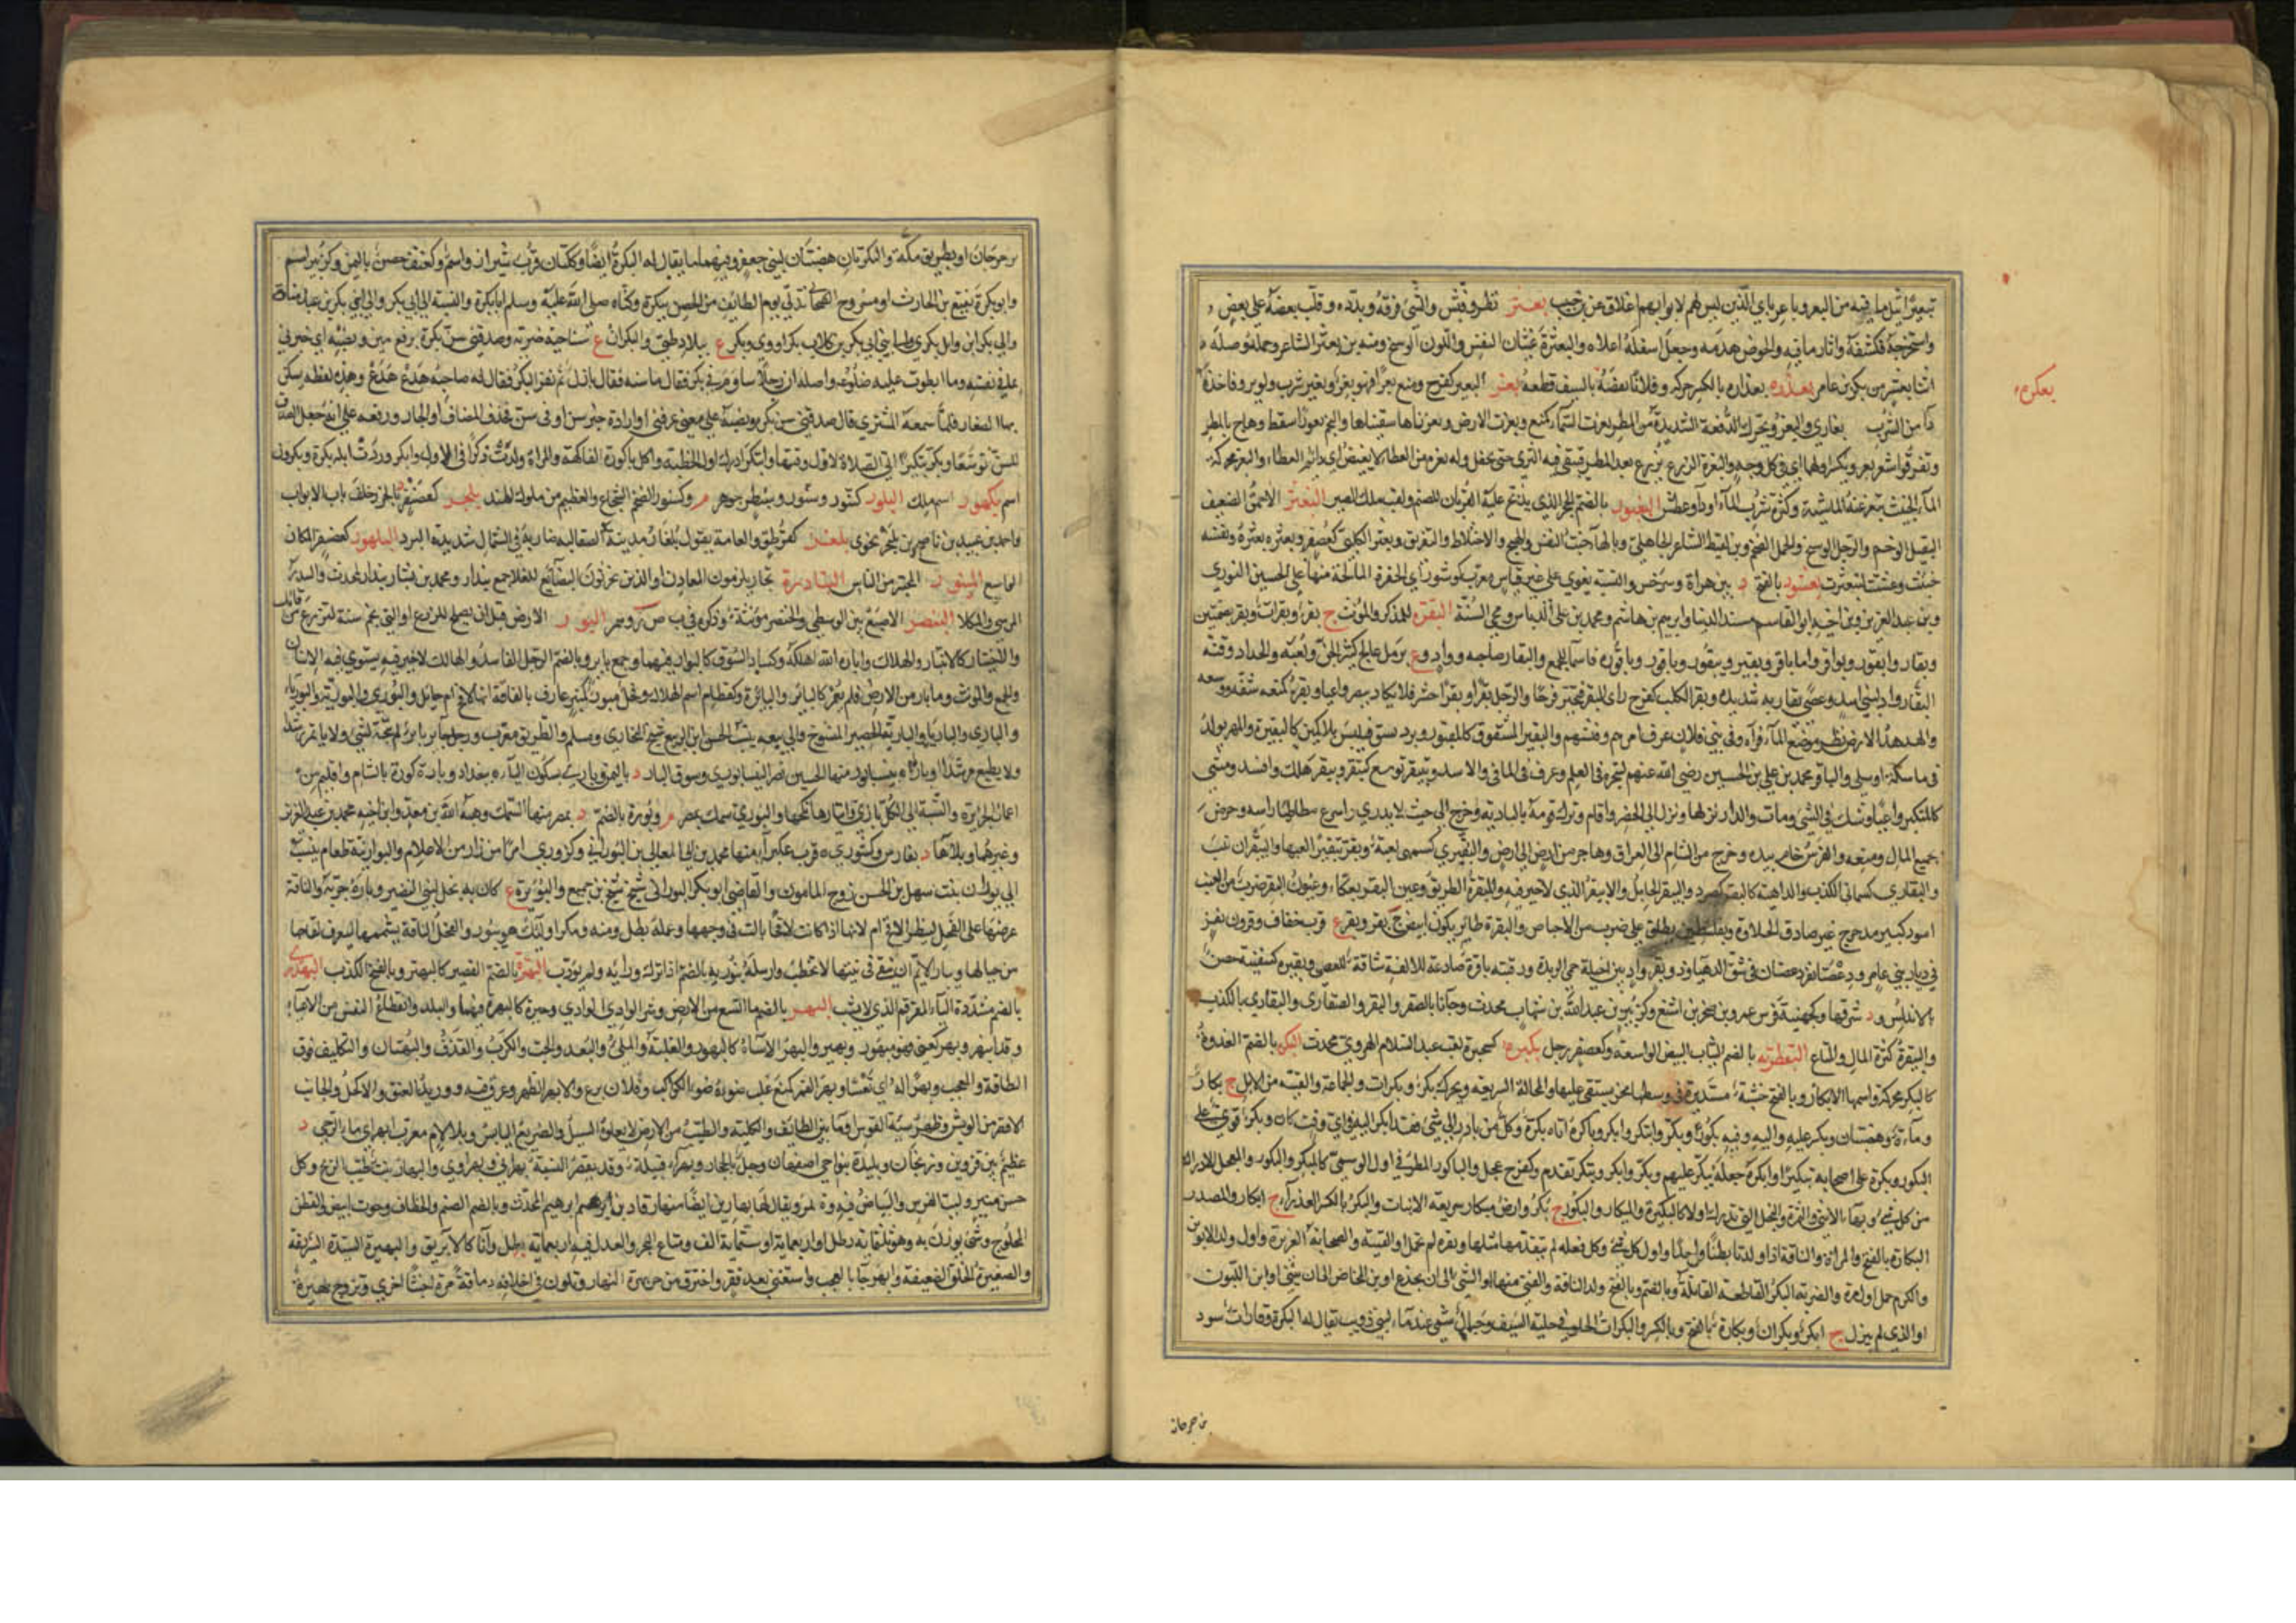 تبعيرًا نثل ما فيه من البعر وباعرباي الذين ليس لهم لابوابهم اغلاق عن بعثر نظر وفتش والشئ فرقه وبدده وقلب بعضه على بعض
واستخرجه فكشفه واثار ما فيه والحوض هدمه وجعل اسفله اعلاه والبعثرة غثيان النفس واللون الوسخ ومنه بن بعثر الشاعر
بن بكر بن عامر بعذره بعذارة بالكسر حركه وفلانا نفضه بالسيف قطعه بغر البعير كفرح ومنع بغرا فهو بغر وبغير شرب ولم يرو فاخذه
بعكره
داء من الشرب بغارى والبغر ويحرك الدفعة الشديدة من المطر بغرت السماء كمنع وبغرت الارض وبغرناها سقيناها والنجم بغورا سقط وهاج بالمطر
وتفرقوا شغر بغر ويكسر اولهما اي في كل وجه والبغرة الزرع يزرع بعد المطر فيبقى فيه الثرى حتى يحقل وله بغرة من العطاء لا يغيض اي دائم العطاء والبغر محركة
الماء الخبيث تبغر عنه الماشية وكثرة شرب الماء او داء وعطش البغبور بالضم الحجر الذي يذبح عليه القربان للصنم ولقب ملك الصين البغثر الاحمق الضعيف
الثقيل الوخم والرجل الوسخ والجمل الضخم وبن لقيط الشاعر الجاهلي وبالهاء خبث النفس والهيج والاختلاط والتفريق وبعثر الكلبي كعصفر وبعثره بعثرة ونفسه
خبثت وغثت كتبعثرت بغشور بالفتح د بين هراة وسرخس والنسبة بغوي على غير قياس معرب كوشور اي الحفرة المالحة منها علي الحسين النوري
وبن عبد العزيز وبن اخيه ابو القاسم مسند الدنيا وابرهيم بن هاشم ومحمد بن علي الدباس ومحيي السنة البقرة للمذكر والمؤنث ج بقر وبقرات وبقر بضمتين
وبقار وابقور وبواقر واما باقر وبقير وبيقور وباقور وباقورة فاسماء للجمع والبقار صاحبه وواد وع برمل عالج كثير الجن ولعبة والحداد وقنة
البقار واد لبني اسد وعصى بقارية شديدة وبقر الكلب كفرح راى البقر فتحير فرحا والرجل بقرا وبقرا حسر فلا يكاد يبصر واعيا وبقره كمنعه شقه ووسعه
والهدهد الارض نظر موضع الماء فرآه وفي بني فلان عرف امرهم وفتشهم والبقير المشقوق كالمبقور وبرد يشق فيلبس بلا كمين كالبقيرة والمهر يولد
في ماسكة او سلى والباقر محمد بن علي بن الحسين رضي الله عنهم لتبحره في العلم وعرق في المآقي والاسد وتبيقر توسع كتبقر وبيقر هلك وافسد ومشى
كالمتكبر واعيا وشك في الشئ ومات والدار نزلها ونزل الى الحضر واقام وترك قومه بالبادية وخرج الى حيث لا يدري واسرع مطاطئا راسه وحرص
بجمع المال ومنعه والفرس خام بيده وخرج من الشام الى العراق وهاجر من ارض الى ارض والبقيرى كسميهى لعبة وبقر تبقيرا لعبها والبقران نبت
والبقارى كسمانى الكذب والداهية كالبقر كصرد والبيقر الحائك والابيقر الذي لا خير فيه والمبقرة الطريق وعين البقر بعكاء وعيون البقر ضرب من العنب
اسود كبير مدحرج غير صادق الحلاوة وبفلسطين يطلق على ضرب من الاجاص والبقرة طائر يكون ابيض ج بقر وبقر ع قرب خفاف وقرون بقر
في ديار بني عامر ودعصتا بقر دعصتان في شق الدهناء وذو بقر واد بين اخيلة حمى الربذة وفتنة باقرة صادعة للالفة شاقة للعصى وبقيرة كسفينة حصن
بالاندلس ود شرقيها وكجهينة فرس عمرو بن صخر بن اشنع وكزبير بن عبد الله بن شهاب محدث وجآنا بالصقر والبقر والصقارى والبقارى بالكذب
والبقرة كثرة المال والمتاع البقطرية بالضم الثياب البيض الواسعة وكعصفر رجل بكيرة كجهينة لقب عبد السلام الهروي محدث البكرة بالضم الغدوة
كالبكر محركة واسمها الابكار وبالفتح خشبة مستديرة في وسطها محز يستقى عليها والمحالة السريعة ويحرك بكر وبكرات والجماعة والفتية من الابل ج بكار
وماءة وهضبتان وبكر عليه واليه وفيه بكورا وبكر وابتكر وابكر وباكره اتاه بكرة وكل من بادر الى شئ فقد ابكر اليه في اي وقت كان وبكر قوي على
البكور وبكره على اصحابه تبكيرا وابكره جعله يبكر عليهم وبكر وابكر وتبكر تقدم وكفرح عجل والباكور المطر في اول الوسمي كالمبكر والبكور والمعجل الادراك
من كل شئ وبهاء الانثى والثمرة والنخل التي تدرك اولا كالبكيرة والمبكار والبكور ج بكر وارض مبكار سريعة الانبات والبكر بالكسر العذراء ج ابكار والمصدر
البكارة بالفتح والمراة والناقة اذا ولدتا بطنا واحدا واول كل شئ وكل فعلة لم يتقدمها مثلها وبقرة لم تحمل او الفتية والسحابة الغزيرة واول ولد الابوين
والكرم حمل اول مرة والضربة البكر القاطعة القاتلة وبالضم وبالفتح ولد الناقة والفتى منها او الثني الى ان يجذع او بن المخاض الى ان يثنى او ابن اللبون
او الذي لم يبزل ج ابكر وبكران وبكارة بالفتح وبالكسر والبكرات الحلق في حلية السيف وجبال شمخ عند ماء لبني ذويب يقال له البكرة وقارات سود
برحرحان
برحرحان او بطريق مكة والبكرتان هضبتان لبني جعفر وفيهما ما يقال له البكرة ايضا وككتان قرب شيراز واسم وكعنق حصن باليمن وكزبير اسم
وابو بكرة نفيع بن الحارث او مسروح الصحابي تدلى يوم الطائف من الحصن ببكرة وكناه صلى الله عليه وسلم ابا بكرة والنسبة الى ابي بكر والى بني بكر بن عبد مناة
والى بكر بن وائل بكري والى بني ابي بكر بن كلاب بكراوى وبكر ع ببلاد طي والبكران ع بناحية ضرية وصدقني سن بكره برفع سن ونصبه اي خبرني
بما في نفسه وما انطوت عليه ضلوعه واصله ان رجلا ساوم في بكر فقال ما سنه فقال بازل ثم نفر البكر فقال له صاحبه هدع هدع وهذه لفظة يسكن
بها الصغار فلما سمعه المشترى قال صدقني سن بكره ونصبه على معنى عرفني او ارادة خبر سن او في سن فحذف المضاف او الجار ورفعه على انه جعل الصدق
للسن توسعا وبكر تبكيرا اتى الصلاة لاول وقتها وابتكر ادرك اول الخطبة واكل باكورة الفاكهة والمراة ولدت ذكرا في الاول وابكر وردت ابله بكرة وبكرون
اسم بكهور اسم ملك البلور كتنور وسنور وسبطر جوهر م وكسنور الضخم الشجاع والعظيم من ملوك الهند بلنجر كعضنفر د بالخزر خلف باب الابواب
واحمد بن عبيد بن ناصح بن بلنجر نحوى بلغر كقرطق والعامة تقول بلغار مدينة الصقالبة ضاربة في الشمال شديدة البرد البلهور كغضنفر المكان
الواسع المبنور المختبر من الناس البنادرة تجار يلزمون المعادن او الذين يخزنون البضائع للغلاء جمع بندار ومحمد بن بشار بندار المحدث والبندر
المرسى والمكلا البنصر الاصبع بين الوسطى والخنصر مؤنثة وذكره في ب ص ر وهم البور الارض قبل ان تصلح للزرع او التي تجم سنة لتزرع من قابل
والاختبار كالابتيار والهلاك واباره الله اهلكه وكساد السوق كالبوار فيهما وجمع بائر وبالضم الرجل الفاسد والهالك لا خير فيه يستوي فيه الاثنان
والجمع والمؤنث وما بار من الارض فلم يعمر كالبائر والبائرة وكقطام اسم الهلاك وفحل مبور كمنبر عارف بالناقة انها لاقح ام حائل والبوري والبورية والبورياء
والباري والبارياء والبارية الحصير المنسوج والى بيعه ينسب الحسن بن الربيع شيخ البخاري ومسلم والطريق معرب ورجل حائر بائر لم يتجه لشئ ولا ياتمر رشدا
ولا يطيع مرشدا وبار ة بنيسابور منها الحسين نصر النيسابوري وسوق البار د باليمن وبارى بسكون الياء ة ببغداد وبارة كورة بالشام واقليم من
اعمال الجزيرة والنسبة الى الكل باري وابتارها نكحها والبوري سمك بمصر م وبورة بالضم د بمصر منها السمك وهبة الله بن معد وابن اخيه محمد بن عبد العزيز
وغيرهما وبلا هاء د بفارس وكشورى ة قرب عكبراء منها محمد بن ابي المعالي بن البوراني وكزورى امرا من زار من الاعلام والبوارنية طعام ينسب
الى بوران بنت سهل بن الحسن زوج المامون والقاضي ابو بكر البوراني شيخ شيخ بن جميع والبويرة ع كان به نخل لبني النضير وباره جربه والناقة
عرضها على الفحل لينظر الاقح ام لا لانها اذا كانت لاقحا بالت في وجهه وعمله بطل ومنه ومكر اولئك هو يبور والفحل الناقة يتشممها ليعرف لقاحها
من حيالها وبار الايم ان تبقى في بيتها لا تخطب وارسله ببوريه بالضم اذا ترك ورايه ولم يودب البهتر بالضم القصير كالبهتر وبالفتح الكذب البهدرى
بالضم مشددة الياء المقرقم الذي لا يشب البهر بالضم ما اتسع من الارض وشر الوادي وخيره كالبهرة فيهما والبلد وانقطاع النفس من الاعياء
وقد انبهر وبهر كعنى فهو مبهور وبهير والبهر الاضاءة كالبهور والغلبة والملء والبعد والحب والكرب والقذف والبهتان والتكليف فوق
الطاقة والعجب وبهرا له اي تعسا وبهر القمر كمنع غلب ضوءه ضوء الكواكب وفلان برع والابهر الظهر وعرق فيه ووريد العنق والاكحل والجانب
الاقصر من الريش وظهر سية القوس وما بين الطائف والكلية والطيب من الارض لا يعلوه السيل والضريع اليابس وبلا لام معرب اب هر اي ماء الرحى د
عظيم بين قزوين وزنجان وبليدة بنواحي اصفهان وجبل بالحجاز وبهراء قبيلة وقد يقصر النسبة بهراني وبهراوي والبهار نبت طيب الريح وكل
حسن منير ولبب الفرس والبياض فيه وة بمرو يقال لها بهارين ايضا منها رقاد بن ابرهيم المحدث وبالضم الصنم والخطاف وحوت ابيض والقطن
المحلوج وشئ يوزن به وهو ثلثمائة رطل او اربعمائة او ستمائة الف ومتاع البحر والعدل فيه اربعمائة رطل واناء كالابريق والبهيرة السيدة الشريفة
والصغيرة الخلق الضعيفة وابهر جاء بالعجب واستغنى بعد فقر واحترق من حر بهرة النهار وتلون في اخلاقه دماثة مرة خبثا اخرى وتزوج بهيرة